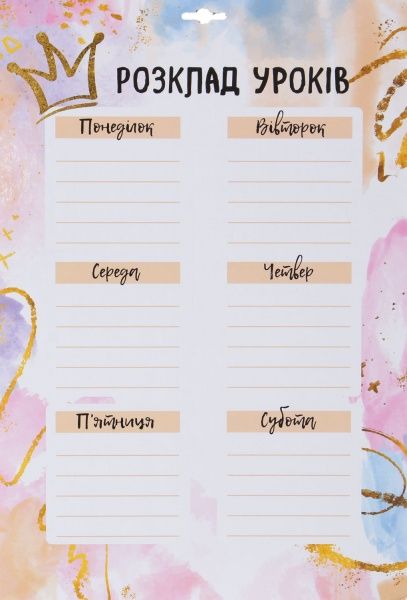 РОЗКЛАД УРОКІВ
Понеділок
Вівторок
Середа
Четвер
П'ятниця
Субота